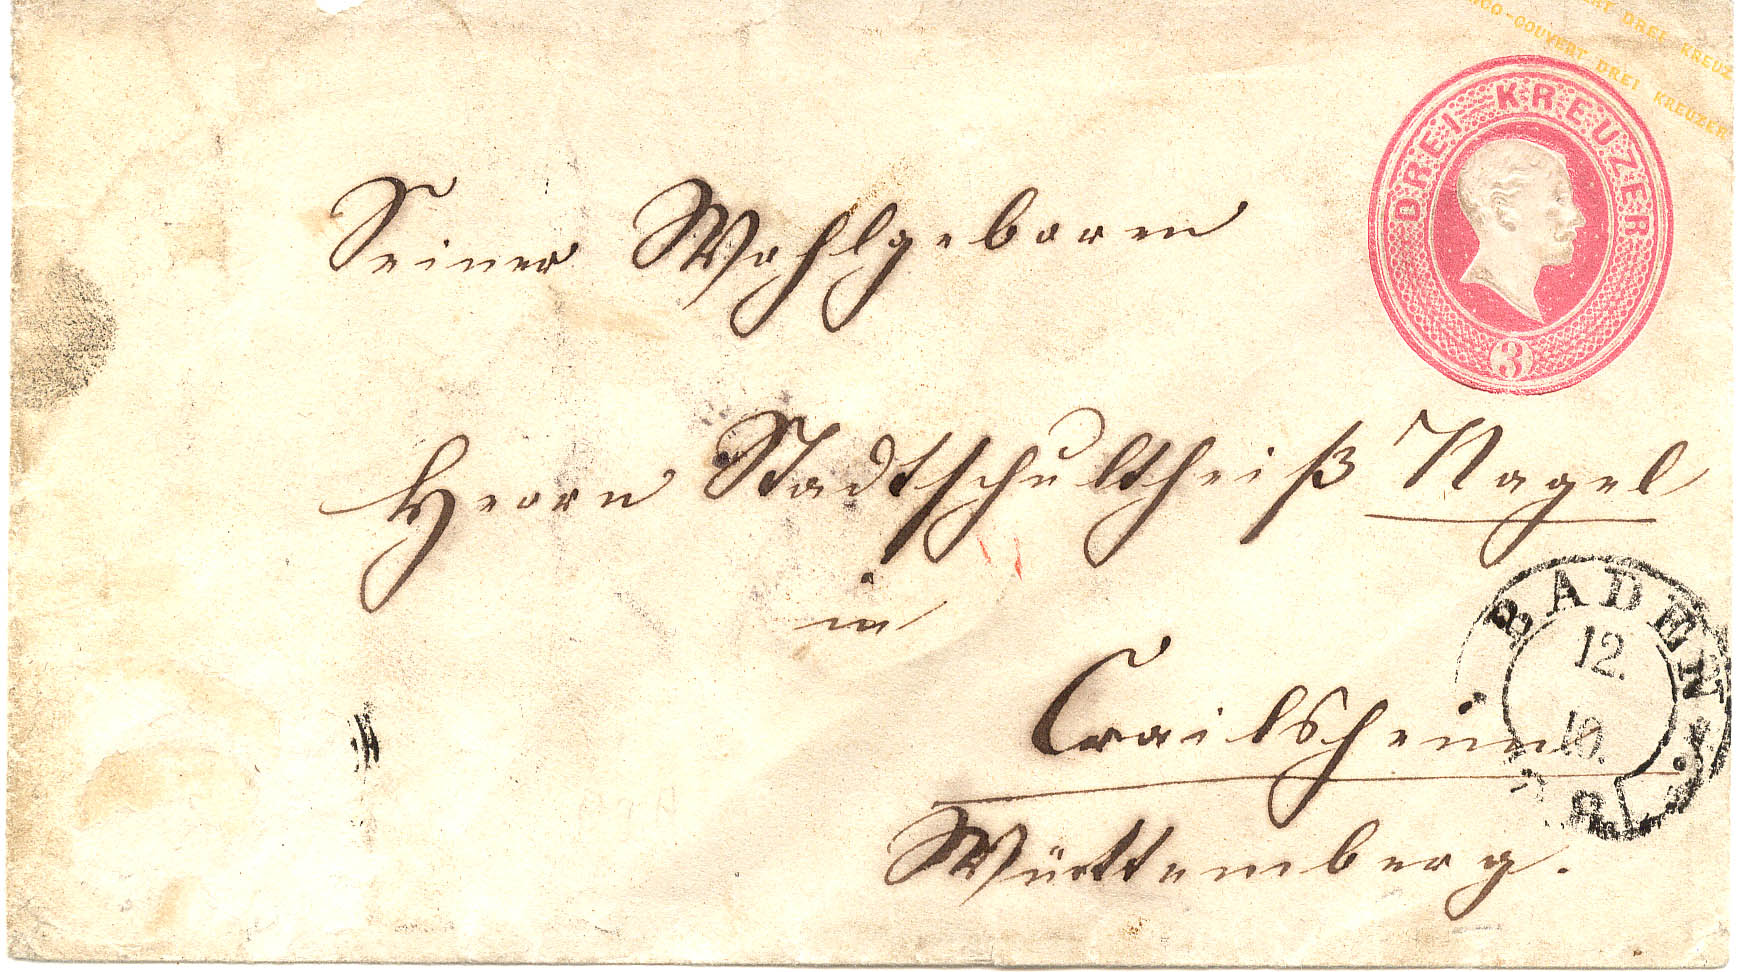 DREI KREUZ
COUVERT DREI KREUZER
DREI KREUZER
3
Seiner Wohlgeboren
Herrn Stadtschultheiß Nagel
in
Crailsheim
Württemberg.
BADEN
12.
10.